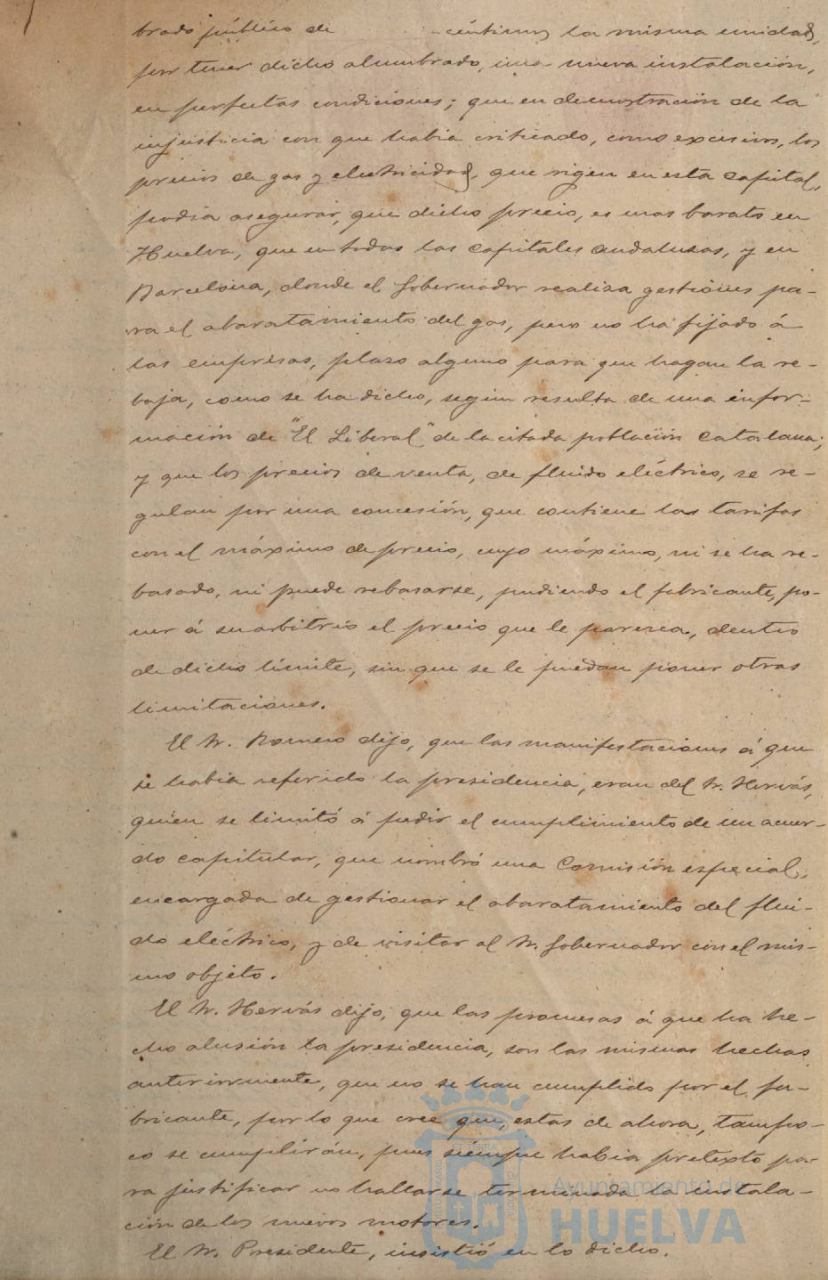 brado público de céntimos la misma unidad,
por tener dicho alumbrado, una nueva instalación,
en perfectas condiciones; que en demostración de la
injusticia con que había criticado, como excesivos, los
precios de gas y electricidad, que rigen en esta capital,
podia asegurar, que dicho precio, es mas barato en
Huelva, que en todas las capitales andaluzas, y en
Barcelona, donde el Gobernador realiza gestiones pa-
ra el abaratamiento del gas, pero no ha fijado á
las empresas, plazo alguno para que hagan la re-
baja, como se ha dicho, segun resulta de una infor-
mación de "El Liberal" de la citada población catalana;
y que los precios de venta, de fluido eléctrico, se re-
gulan por una concesión, que contiene las tarifas
con el máximo de precio, cuyo máximo, ni se ha re-
basado, ni puede rebasarse, pudiendo el fabricante, po-
ner á su arbitrio el precio que le parezca, dentro
de dicho límite, sin que se le puedan poner otras
limitaciones.
El Sr. Romero dijo, que las manifestaciones á que
se habia referido la presidencia, eran del Sr. Hervás,
quien se limitó á pedir el cumplimiento de un acuer-
do capitular, que nombró una Comisión especial,
encargada de gestionar el abaratamiento del flui-
do eléctrico, y de visitar al Sr. Gobernador con el mis-
mo objeto.
El Sr. Hervás dijo, que las promesas á que ha he-
cho alusión la presidencia, son las mismas hechas
anteriormente, que no se han cumplido por el fa-
bricante, por lo que cree que, estas de ahora, tampo-
co se cumplirán, pues siempre habia pretexto pa-
ra justificar no hallarse terminada la instala-
ción de los nuevos motores.
El Sr. Presidente, insistió en lo dicho.
Ayuntamiento de
HUELVA